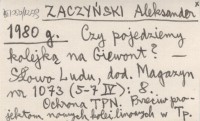 ZACZYŃSKI Aleksander
1980 g. Czy pojedziemy
kolejką na Giewont? –
Słowo Ludu, dod. Magazyn
nr 1073 (5-7 IV): 8.
Ochrona TPN. Przeciw pro-
jektom nowych kolei linowych w Tp.